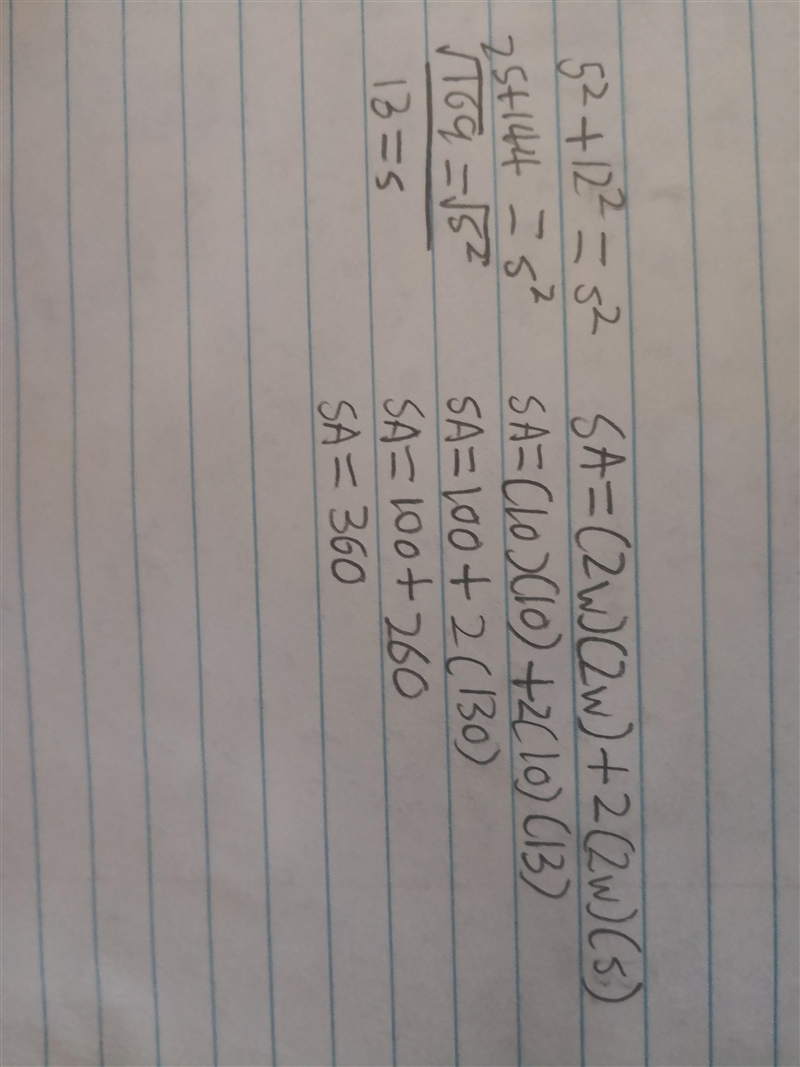 5² + 12² = s²
25+144 = s²
√169 = √s²
13 = s
SA = (2w)(2w) + 2(2w)(s)
SA = (10)(10) + 2(10)(13)
SA = 100 + 2(130)
SA = 100 + 260
SA = 360